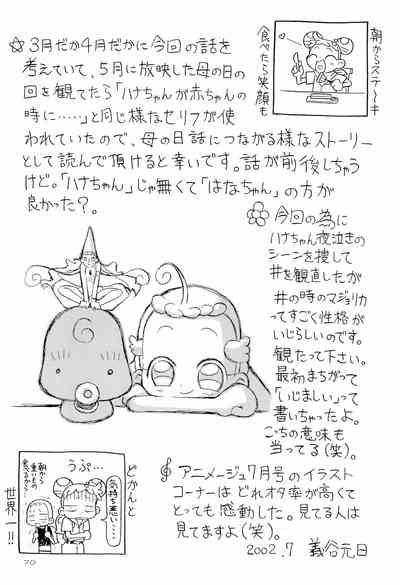 ☆3月だか4月だかに今回の話を
考えていて、5月に放映した母の日の
回を観てたら「ハナちゃんが赤ちゃんの
時に……」と同じ様なセリフが使
われていたので、母の日話につながる様なストーリー
として読んで頂けると幸いです。話が前後しちゃう
けど。「ハナちゃん」じゃ無くて「はなちゃん」の方が
良かった?。
朝からステーキ
食べたら笑顔も
今回の為に
ハナちゃん夜泣きの
シーンを捜して
#を観直したが
#の時のマジョリカ
ってすごく性格が
いじらしいのです。
観たって下さい。
最初まちがって
「いじましい」って
書いちゃったよ。
こっちの意味も
当ってる(笑)。
どかんと
うぷ…
気持ち悪い…
朝から
重いもの
食べるから…
世界一!!
アニメージュ7月号のイラスト
コーナーはどれオタ率が高くて
とっても感動した。見てる人は
見てますよ(笑)。
2002.7 義谷元日
70